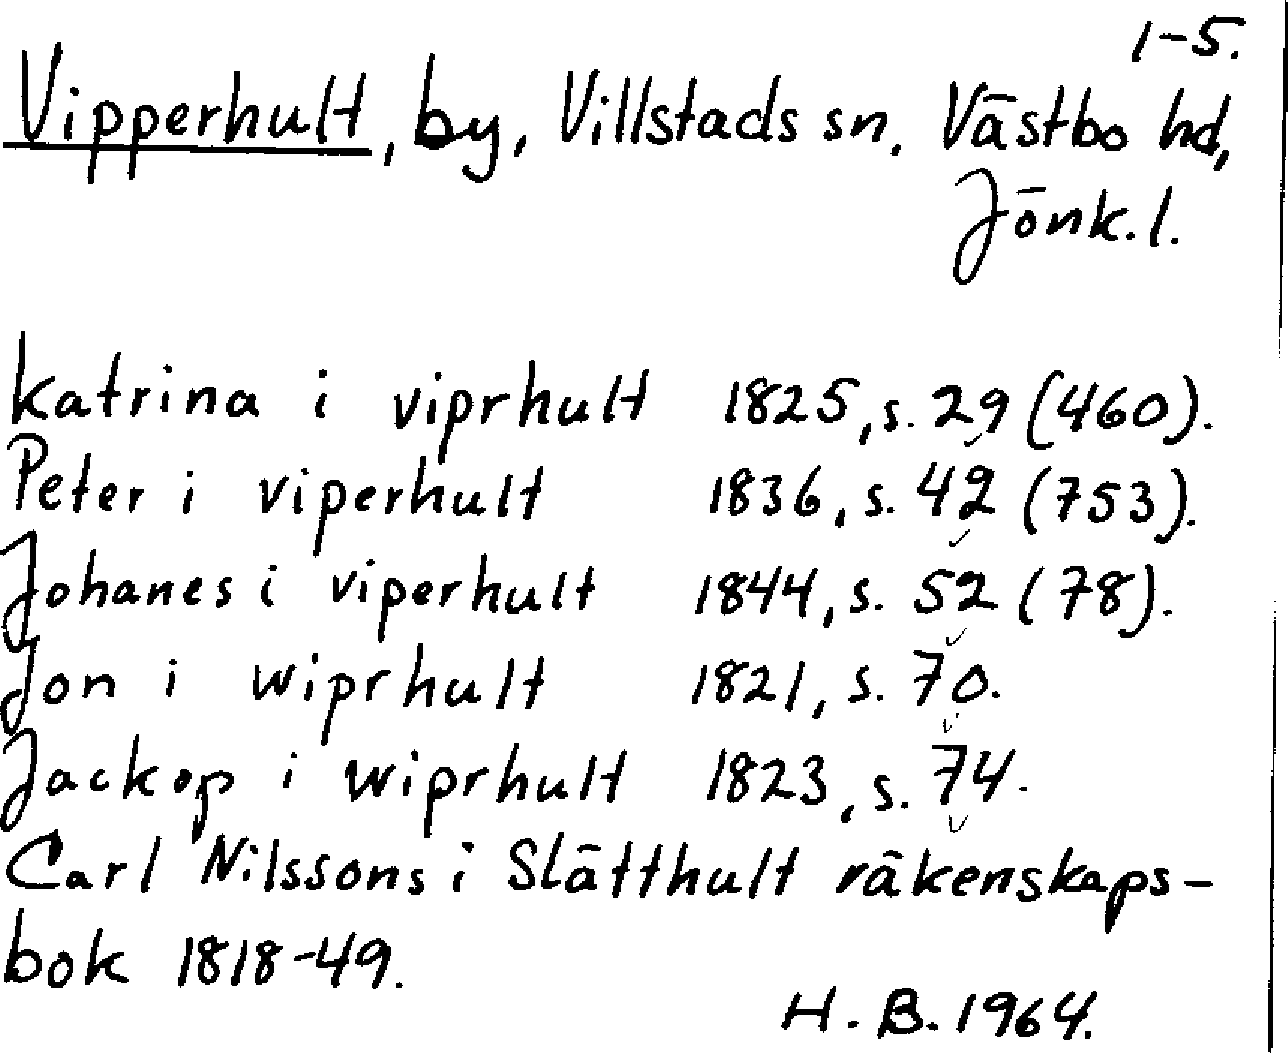 1-5.
Vipperhult, by, Villstads sn. Västbo hd,
Jönk. l.
Katrina i viprhult 1825, s. 29 (460).
Peter i viperhult 1836, s. 42 (753).
Johanes i viperhult 1844, s. 52 (78).
Jon i wiprhult 1821, s. 70.
Jackop i wiprhult 1823, s. 74.
Carl Nilssons i Slätthult räkenskaps-
bok 1818-49.
H. B. 1964.